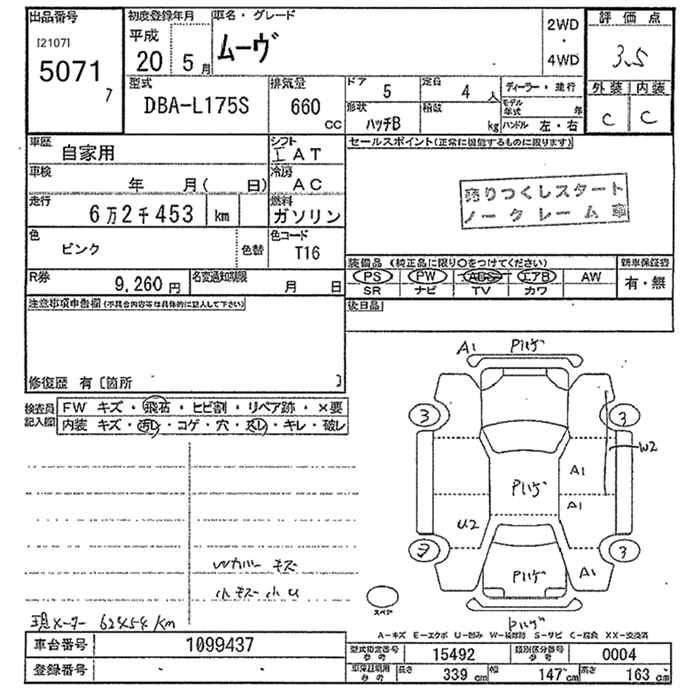 出品番号
[2107]
5071
7
初度登録年月
平成
20 5月
車名・グレード
ムーヴ
2WD
・
4WD
評価点
3.5
外装 内装
C C
型式
DBA-L175S
排気量
660
cc
ドア
5
定員
4 人
形状
ハッチB
積載
kg
ディーラー・並行
モデル年式 年
ハンドル 左・右
車歴
自家用
シフト
I AT
セールスポイント(正常に機能するものに限ります)
車検
年 月( 日)
冷房
AC
売りつくしスタート
ノークレーム車
走行
6万2千453 km
燃料
ガソリン
色
ピンク
色替
色コード
T16
装備品 (純正品に限り○をつけてください)
新車保証書
PS PW ABS エアB AW
SR ナビ TV カワ
有・無
R券
9,260円
名変通知期限
月 日
注意事項申告欄(不具合内容等は具体的に記入して下さい)
後日品
修復歴 有 [箇所 ]
検査員記入欄
FW キズ・飛石・ヒビ割・リペア跡・×要
内装 キズ・汚レ・コゲ・穴・スレ・キレ・破レ
A1 Pハゲ
3 3
W2
A1
Pハゲ
A1
U2
3 3
Pハゲ
A1
Wカバー キズ
小キズ 小U
スペア
Pハゲ
現メーター 62454 km
A-キズ E-エクボ U-凹み W-補修跡 S-サビ C-腐食 XX-交換済
車台番号
1099437
型式指定番号
参考
15492
類別区分番号
参考
0004
登録番号
車庫証明用
参考
長さ
339 cm
幅
147 cm
高さ
163 cm